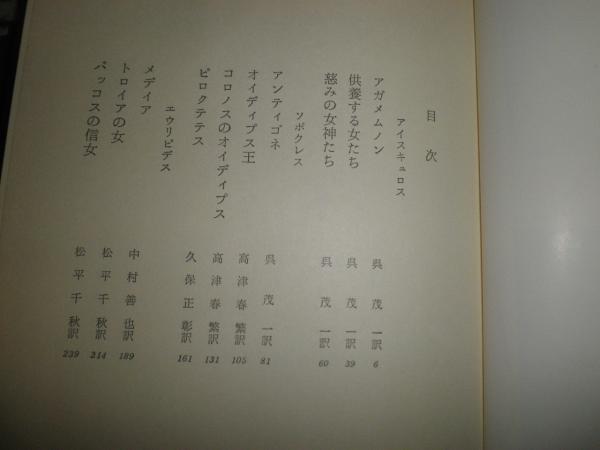 目次
アイスキュロス
アガメムノン 呉茂一訳 6
供養する女たち 呉茂一訳 39
慈みの女神たち 呉茂一訳 60
ソポクレス
アンティゴネ 呉茂一訳 81
オイディプス王 高津春繁訳 105
コロノスのオイディプス 高津春繁訳 131
ピロクテテス 久保正彰訳 161
エウリピデス
メデイア 中村善也訳 189
トロイアの女 松平千秋訳 214
バッコスの信女 松平千秋訳 239